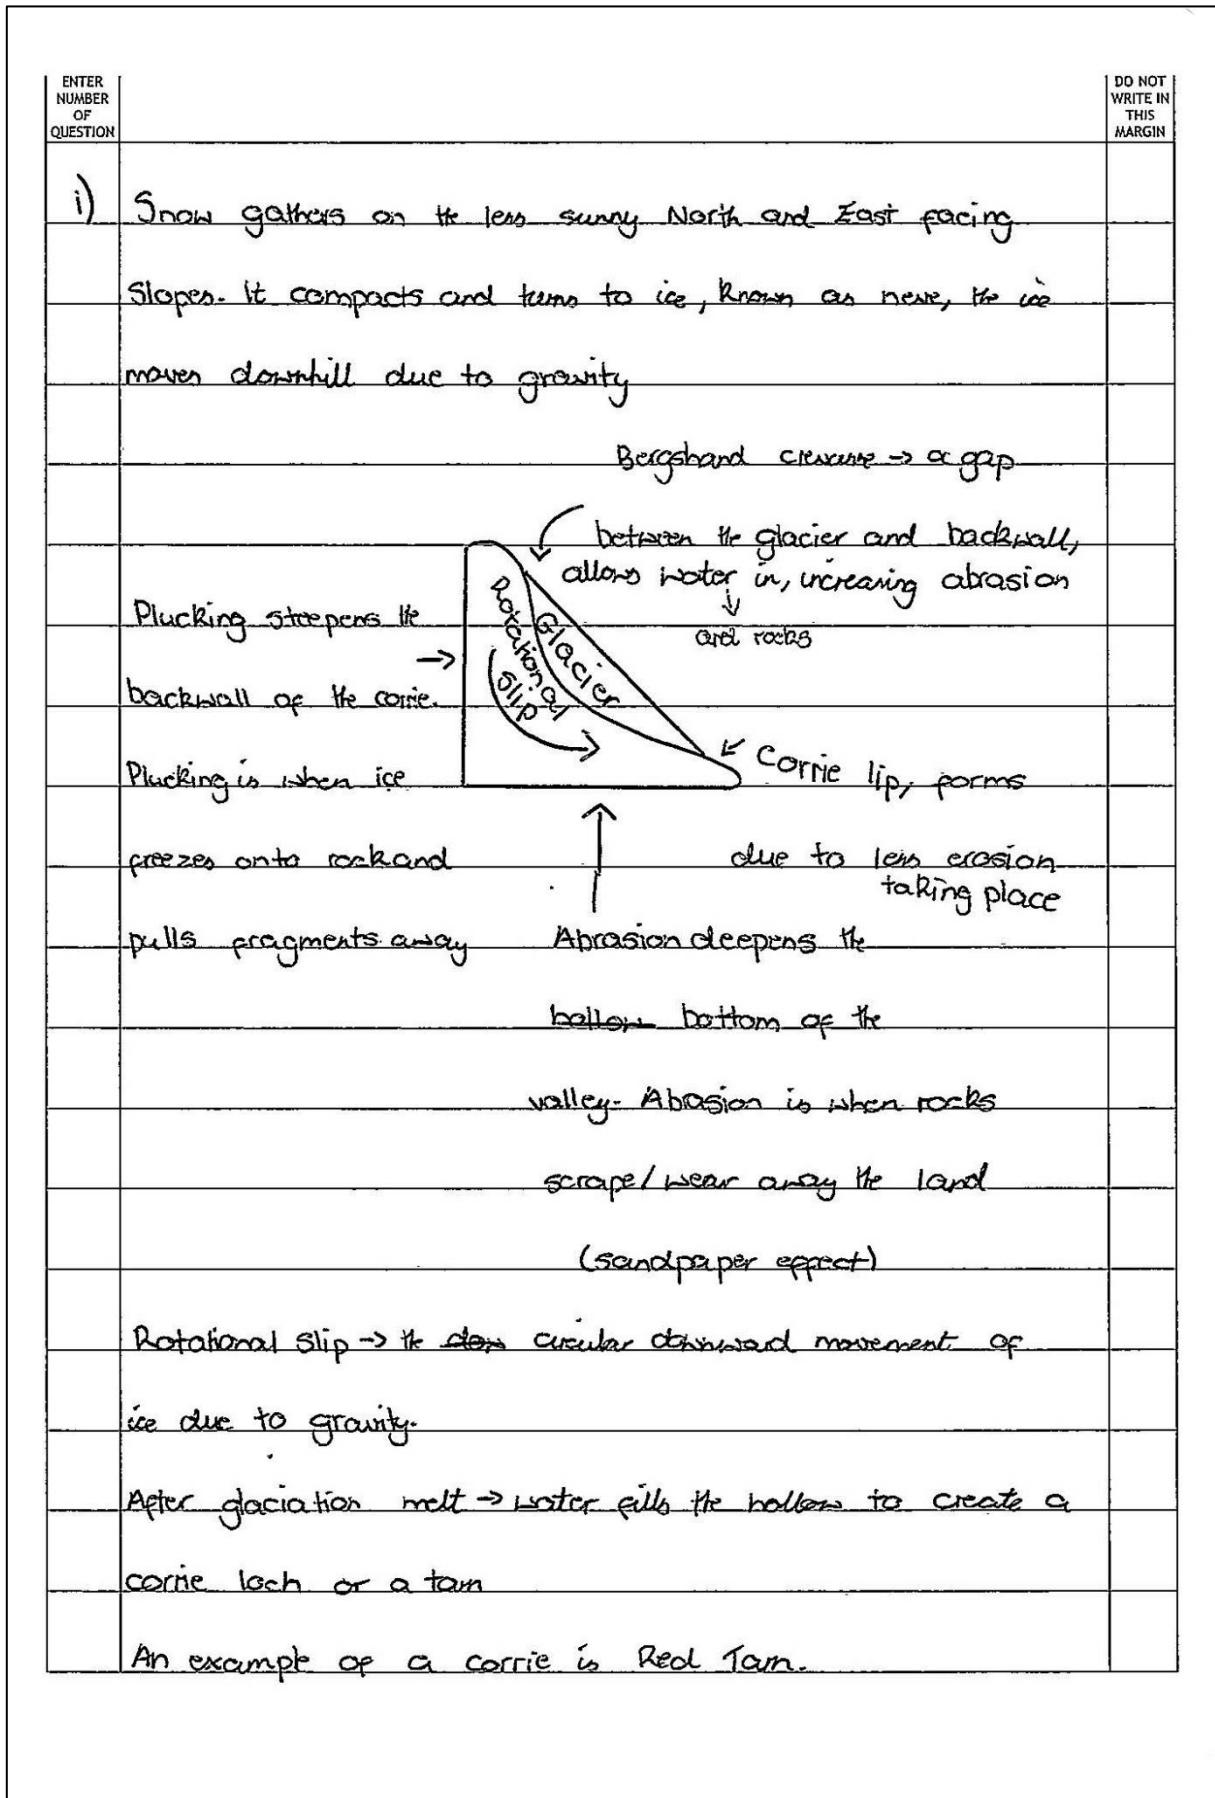 ENTER
NUMBER
OF
QUESTION
DO NOT
WRITE IN
THIS
MARGIN
i)
Snow gathers on the less sunny North and East facing
slopes. It compacts and turns to ice, known as neve, the ice
moves downhill due to gravity
Bergshand crevasse → a gap
between the glacier and backwall,
allows water in, increasing abrasion
and rocks
Plucking steepens the
backwall of the corrie.
Plucking is when ice
freezes onto rock and
pulls fragments away
Rotational
Slip
Glacier
Corrie lip, forms
due to less erosion
taking place
Abrasion deepens the
hollow bottom of the
valley. Abrasion is when rocks
scrape/wear away the land
(sandpaper effect)
Rotational Slip → the dow circular downward movement of
ice due to gravity.
After glaciation melt → water fills the hollow to create a
corrie loch or a tarn
An example of a corrie is Red Tarn.